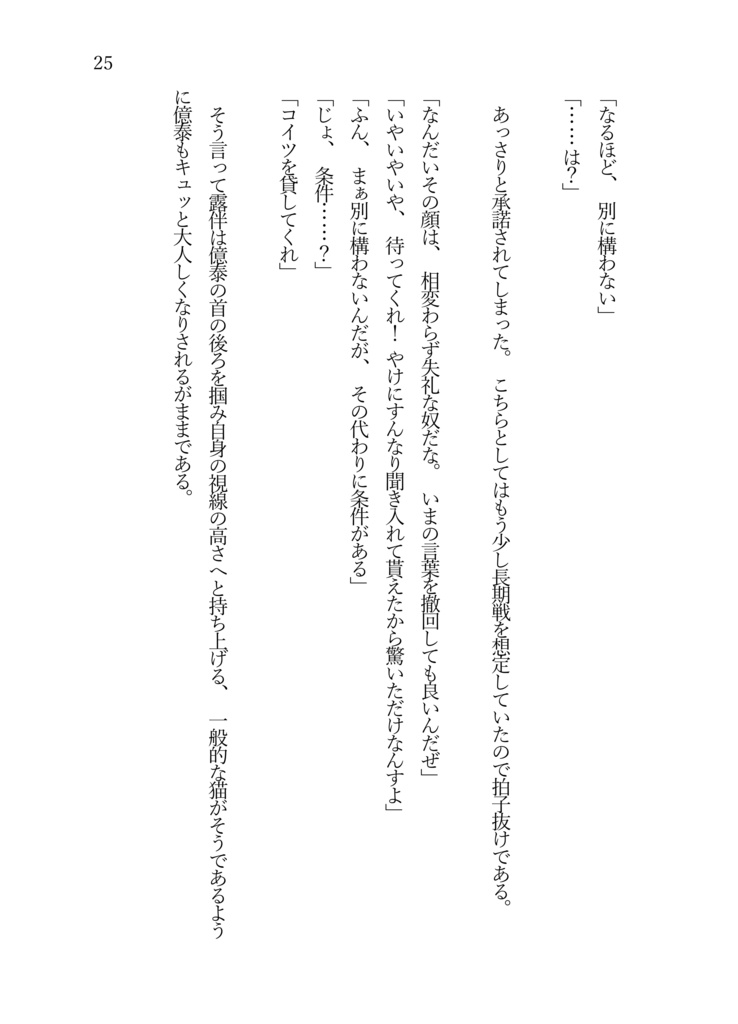 25
「なるほど、別に構わない」
「……は？」
あっさりと承諾されてしまった。こちらとしてはもう少し長期戦を想定していたので拍子抜けである。
「なんだいその顔は、相変わらず失礼な奴だな。いまの言葉を撤回しても良いんだぜ」
「いやいやいや、待ってくれ！やけにすんなり聞き入れて貰えたから驚いただけなんすよ」
「ふん、まぁ別に構わないんだが、その代わりに条件がある」
「じょ、条件……？」
「コイツを貸してくれ」
そう言って露伴は億泰の首の後ろを掴み自身の視線の高さへと持ち上げる、一般的な猫がそうであるよう
に億泰もキュッと大人しくなりされるがままである。